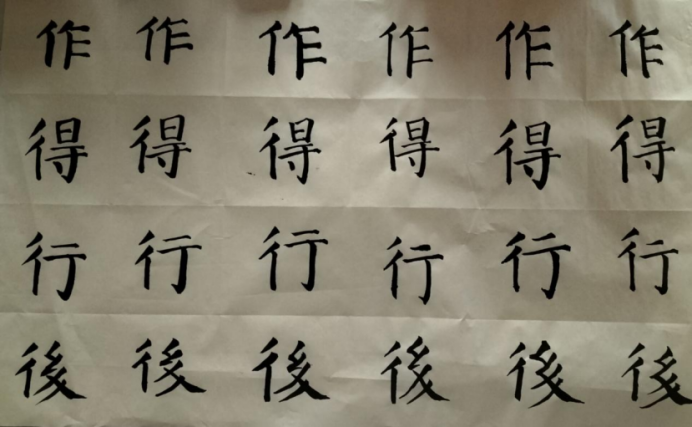 作作作作作作
得得得得得得
行行行行行行
後後後後後後